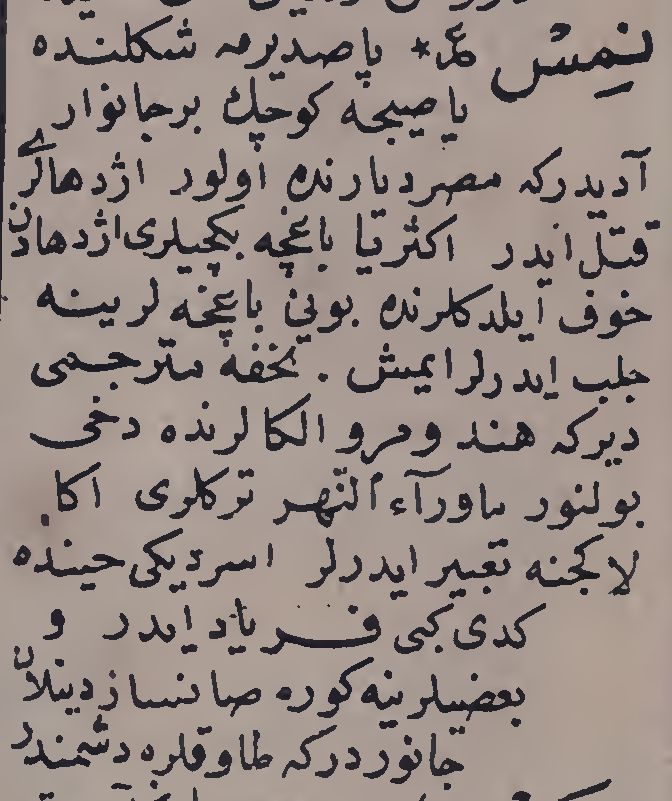 نمس عر* پاصديرمه شكلنده
ياصيجه كوچك برجانوار
آديدركه مصر ديارنده اولور اژدهالرى
قتل ايدر اكثريا باغچه بكچيلرى اژدهادن
خوف ايلدكلرنده بونى باغچه لرينه
جلب ايدرلر ايمش . تحفه مترجمى
ديركه هند ومرو الكالرنده دخى
بولنور ماورآء النّهر تركلرى اكا
لاكجنه تعبير ايدرلر اسرديكى حينده
كدى كبى فرياد ايدر و
بعضيلرينه كوره صانساز دينلان
جانوردركه طاوقلره دشمندر